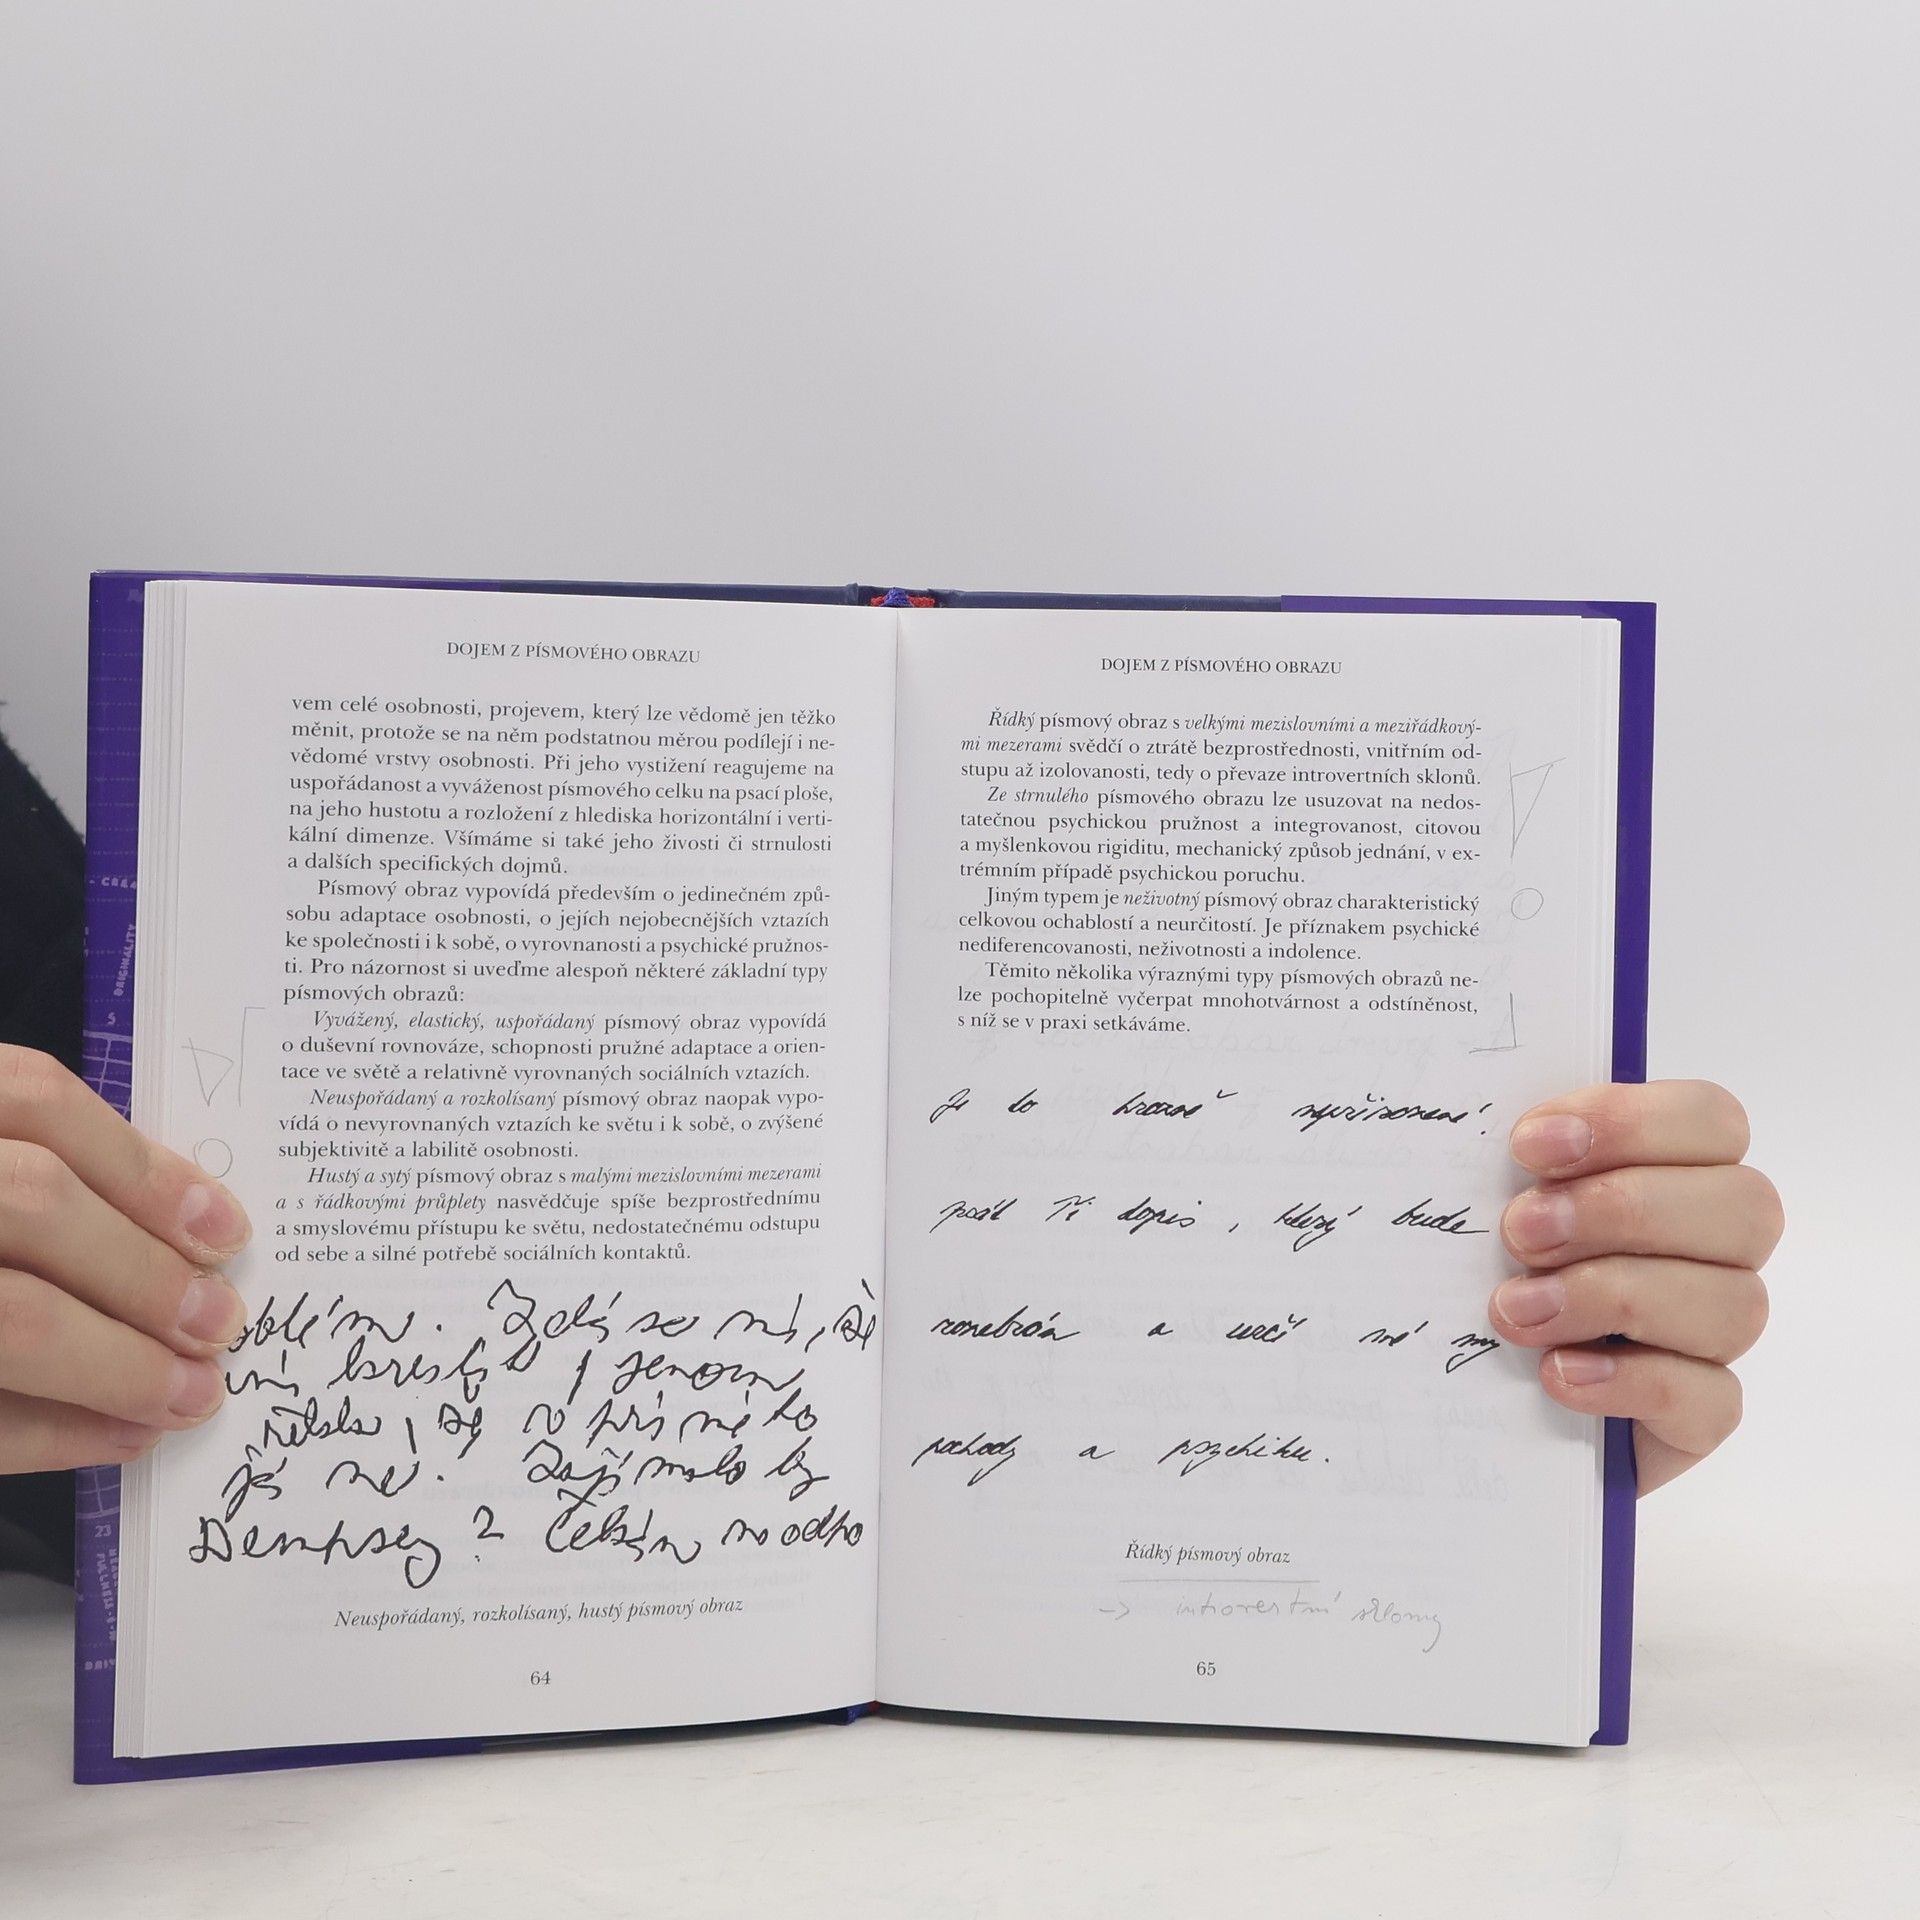 DOJEM Z PÍSMOVÉHO OBRAZU
vem celé osobnosti, projevem, který lze vědomě jen těžko
měnit, protože se na něm podstatnou měrou podílejí i ne-
vědomé vrstvy osobnosti. Při jeho vystižení reagujeme na
uspořádanost a vyváženost písmového celku na psací ploše,
na jeho hustotu a rozložení z hlediska horizontální i verti-
kální dimenze. Všímáme si také jeho živosti či strnulosti
a dalších specifických dojmů.
Písmový obraz vypovídá především o jedinečném způ-
sobu adaptace osobnosti, o jejích nejobecnějších vztazích
ke společnosti i k sobě, o vyrovnanosti a psychické pružnos-
ti. Pro názornost si uveďme alespoň některé základní typy
písmových obrazů:
Vyvážený, elastický, uspořádaný písmový obraz vypovídá
o duševní rovnováze, schopnosti pružné adaptace a orien-
tace ve světě a relativně vyrovnaných sociálních vztazích.
Neuspořádaný a rozkolísaný písmový obraz naopak vypo-
vídá o nevyrovnaných vztazích ke světu i k sobě, o zvýšené
subjektivitě a labilitě osobnosti.
Hustý a sytý písmový obraz s malými mezislovními mezerami
a s řádkovými průplety nasvědčuje spíše bezprostřednímu
a smyslovému přístupu ke světu, nedostatečnému odstupu
od sebe a silné potřebě sociálních kontaktů.
Zdá se mi, že
jenom
že v písmé to
já ne. Zajímalo by
Dempsey? Čekám na odpo
Neuspořádaný, rozkolísaný, hustý písmový obraz
64
DOJEM Z PÍSMOVÉHO OBRAZU
Řídký písmový obraz s velkými mezislovními a meziřádkový-
mi mezerami svědčí o ztrátě bezprostřednosti, vnitřním od-
stupu až izolovanosti, tedy o převaze introvertních sklonů.
Ze strnulého písmového obrazu lze usuzovat na nedos-
tatečnou psychickou pružnost a integrovanost, citovou
a myšlenkovou rigiditu, mechanický způsob jednání, v ex-
trémním případě psychickou poruchu.
Jiným typem je neživotný písmový obraz charakteristický
celkovou ochablostí a neurčitostí. Je příznakem psychické
nediferencovanosti, neživotnosti a indolence.
Těmito několika výraznými typy písmových obrazů ne-
lze pochopitelně vyčerpat mnohotvárnost a odstíněnost,
s níž se v praxi setkáváme.
Je to hrozně nepřirozené!
psát Ti dopis, který bude
rozebrán a určí mé my
pochody a psychiku.
Řídký písmový obraz
-> introvertní sklony
65